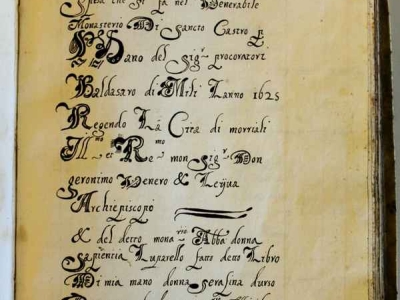 Spesa che si fa nel Venerabile
Monasterio Di Santo Castro P
Mano del sig.r procoratori
Baldasaro di Mili Lanno 1625
Regendo La Cita di morriali
Ill.mo et Re.mo mon sig.r Don
geronimo Venero & Leijua
Archiepiscopo
& del detto mona.rio Abba donna
Sapientia Luparello fatto detto Libro
Di mia mano donna serafina durso